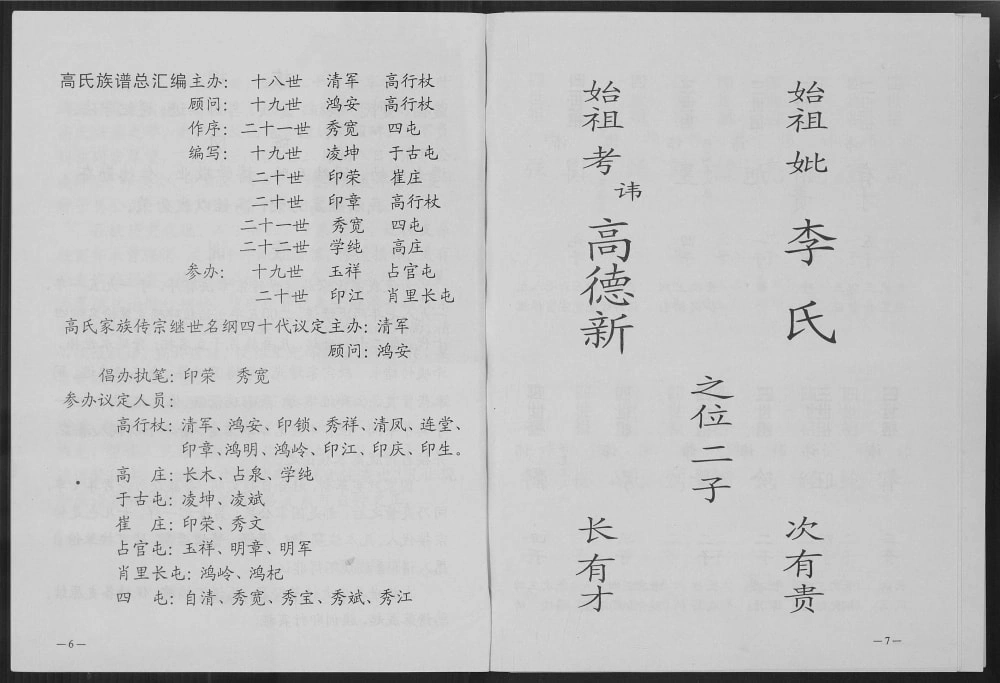 高氏族谱总汇编主办： 十八世 清军 高行杖
顾问： 十九世 鸿安 高行杖
作序： 二十一世 秀宽 四屯
编写： 十九世 凌坤 于古屯
二十世 印荣 崔庄
二十世 印章 高行杖
二十一世 秀宽 四屯
二十二世 学纯 高庄
参办： 十九世 玉祥 占官屯
二十世 印江 肖里长屯
高氏家族传宗继世名纲四十代议定主办：清军
顾问：鸿安
倡办执笔：印荣 秀宽
参办议定人员：
高行杖：清军、鸿安、印锁、秀祥、清凤、连堂、
印章、鸿明、鸿岭、印江、印庆、印生。
高 庄：长木、占泉、学纯
于古屯：凌坤、凌斌
崔 庄：印荣、秀文
占官屯：玉祥、明章、明军
肖里长屯：鸿岭、鸿杞
四 屯：自清、秀宽、秀宝、秀斌、秀江
—6—
始祖妣 李氏
始祖考 讳 高德新
之位二子
次有贵
长有才
—7—